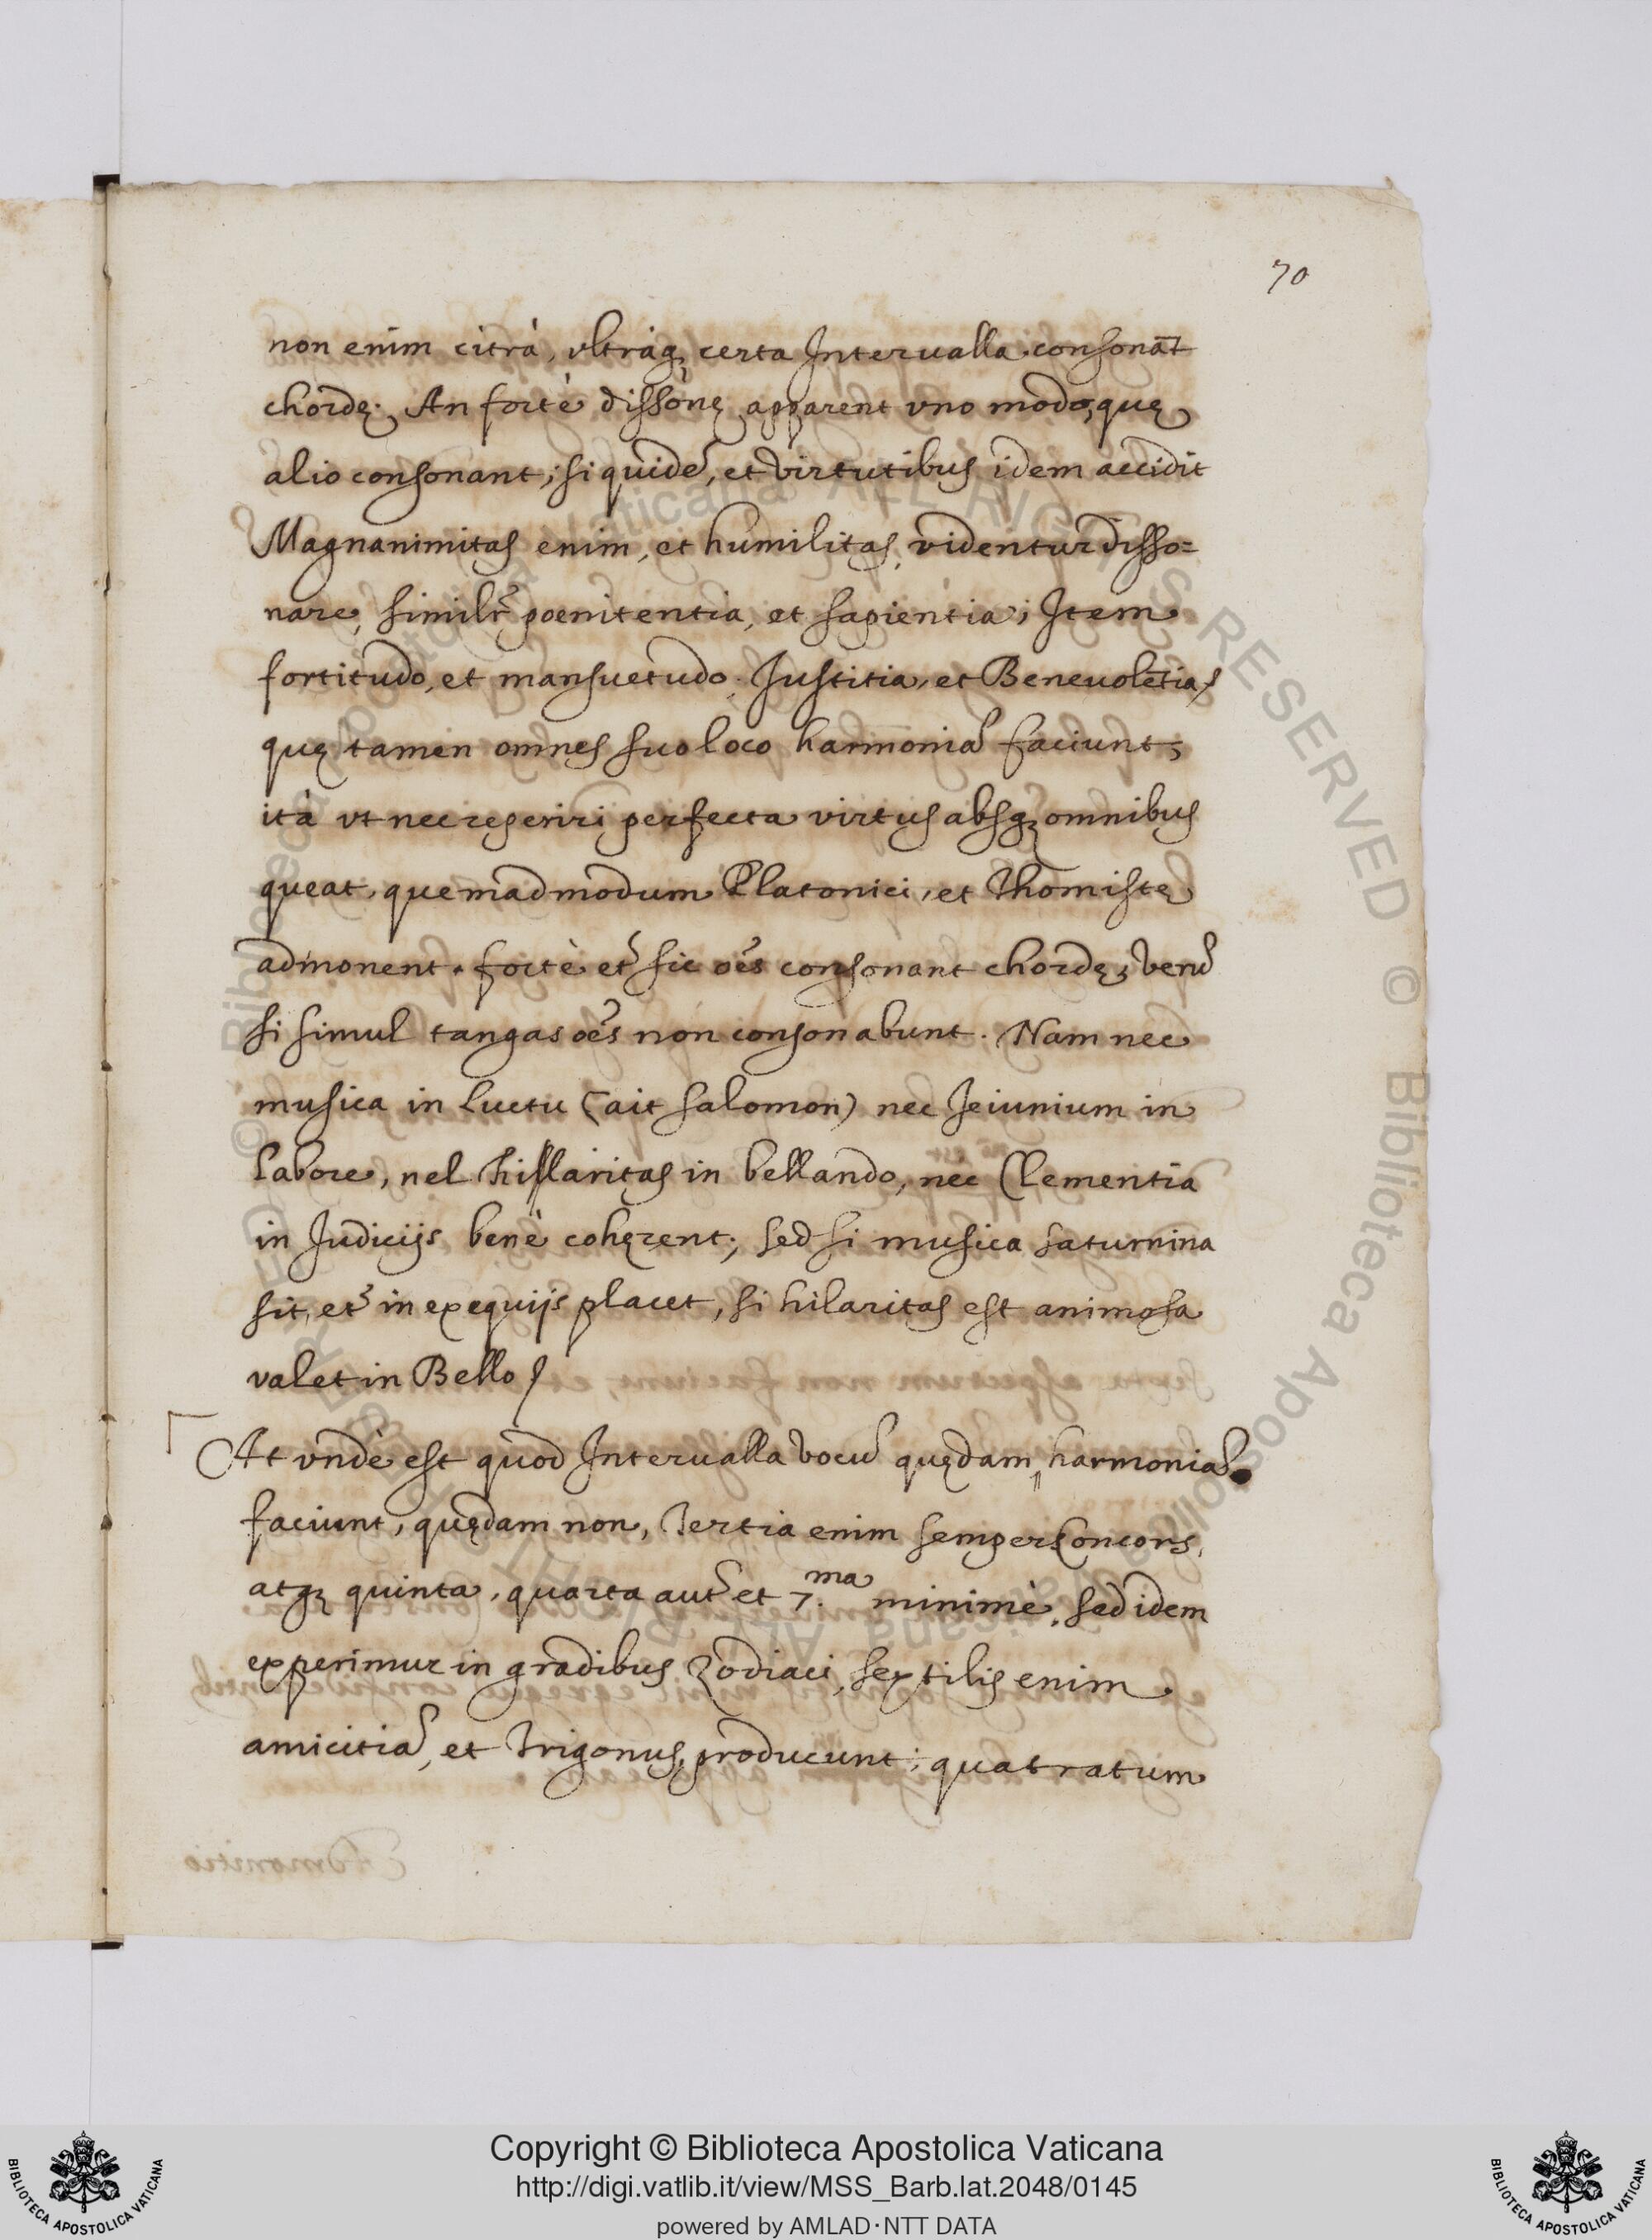 70
non enim citrà, vltràq; certa Interualla consonāt
chordę. An fortè dissonę apparent vno modo, quę
alio consonant; siquidẽ, et virtutibus idem accidit
Magnanimitas enim, et humilitas, videntur disso=
nare, similr̃ poenitentia, et sapientia; Item
fortitudo, et mansuetudo. Justitia, et Beneuolẽtia,
quę tamen omnes suo loco harmoniã faciunt;
ità vt nec reperiri perfecta virtus absq; omnibus
queat, quemadmodum Platonici, et Thomistę
admonent. fortè et̃ sic oẽs consonant chordę, verũ
si simul tangas oẽs non consonabunt. Nam nec
musica in luctu (ait Salomon) nec Jeiunium in
labore, nel hillaritas in bellando, nec Clementia
in Judicijs benè cohęrent; sed si musica saturnina
sit, et̃ in exequijs placet, si hilaritas est animosa
valet in Bello
At vndè est quod Interualla vocũ quędam harmoniã
faciunt, quędam non, Tertia enim semper concors,
atq; quinta, quarta aut̃ et 7.ma minimè, sed idem
experimur in gradibus Zodiaci, sextilis enim
amicitiã, et Trigonus, producunt; quatratum
Copyright © Biblioteca Apostolica Vaticana
http://digi.vatlib.it/view/MSS_Barb.lat.2048/0145
powered by AMLAD·NTT DATA
BIBLIOTECA APOSTOLICA VATICANA
BIBLIOTECA APOSTOLICA VATICANA